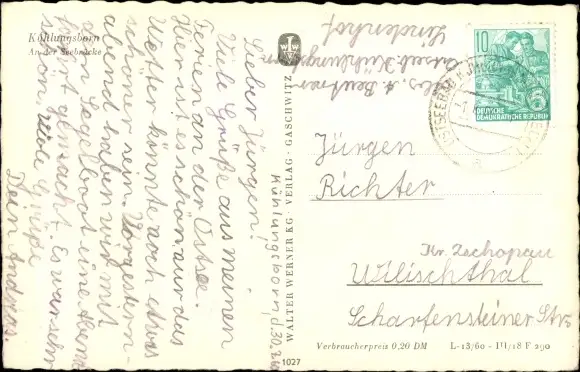 Kühlungsborn
An der Seebrücke
Kühlungsborn, d. 30.
Lieber Jürgen!
Viele Grüße aus meinen
Ferien an der Ostsee.
Hier ist es schön, nur das
Wetter könnte noch etwas
schöner sein. Vorgestern-
abend haben wir mit
dem Segelboot eine Abend
fahrt gemacht. Es war sehr
schön. Viele Grüße
Dein Andreas.
WALTER WERNER KG · VERLAG · GASCHWITZ
1027
Abs. A. Beutner
Ostseeb. Kühlungsborn
Lindenhof
10
DEUTSCHE
DEMOKRATISCHE REPUBLIK
OSTSEEBAD KÜHLUNGSBORN
Jürgen
Richter
Kr. Zschopau
Wilischthal
Scharfensteiner Str.
Verbraucherpreis 0,20 DM
L-13/60 - III/18 F 290